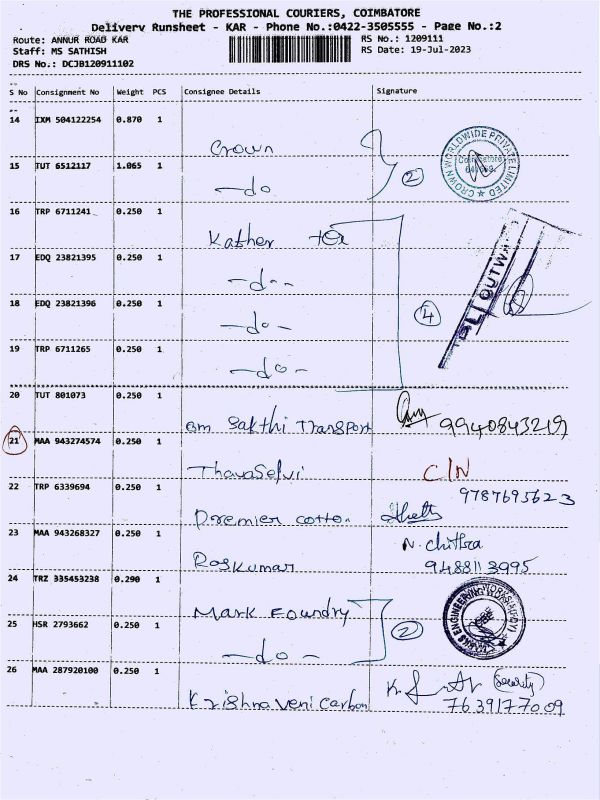 THE PROFESSIONAL COURIERS, COIMBATORE
Delivery Runsheet - KAR - Phone No.:0422-3505555 - Page No.:2
Route: ANNUR ROAD KAR
RS No.: 1209111
Staff: MS SATHISH
RS Date: 19-Jul-2023
DRS No.: DCJB120911102
S No Consignment No Weight PCS Consignee Details Signature
14 IXM 504122254 0.870 1 Crown
15 TUT 6512117 1.065 1 -do 2
CROWN WORLDWIDE PRIVATE LIMITED
Coimbatore
16 TRP 6711241 0.250 1 Kather Tex
17 EDQ 23821395 0.250 1 -d--
18 EDQ 23821396 0.250 1 -do- 4
OUTWA
19 TRP 6711265 0.250 1 -do-
20 TUT 801073 0.250 1 Gm Sakthi Transport 9940843219
21 MAA 943274574 0.250 1 Thavaselvi C/N
22 TRP 6339694 0.250 1 Premier cotto. 9787695623
23 MAA 943268327 0.250 1 Raskumar N. chithra 9488113995
24 TRZ 335453238 0.290 1 Mark Foundry
25 HSR 2793662 0.250 1 -do- 2
ENGINEERING
CBE
26 MAA 287920100 0.250 1 Krishna veni carbon (Security)
7639177009